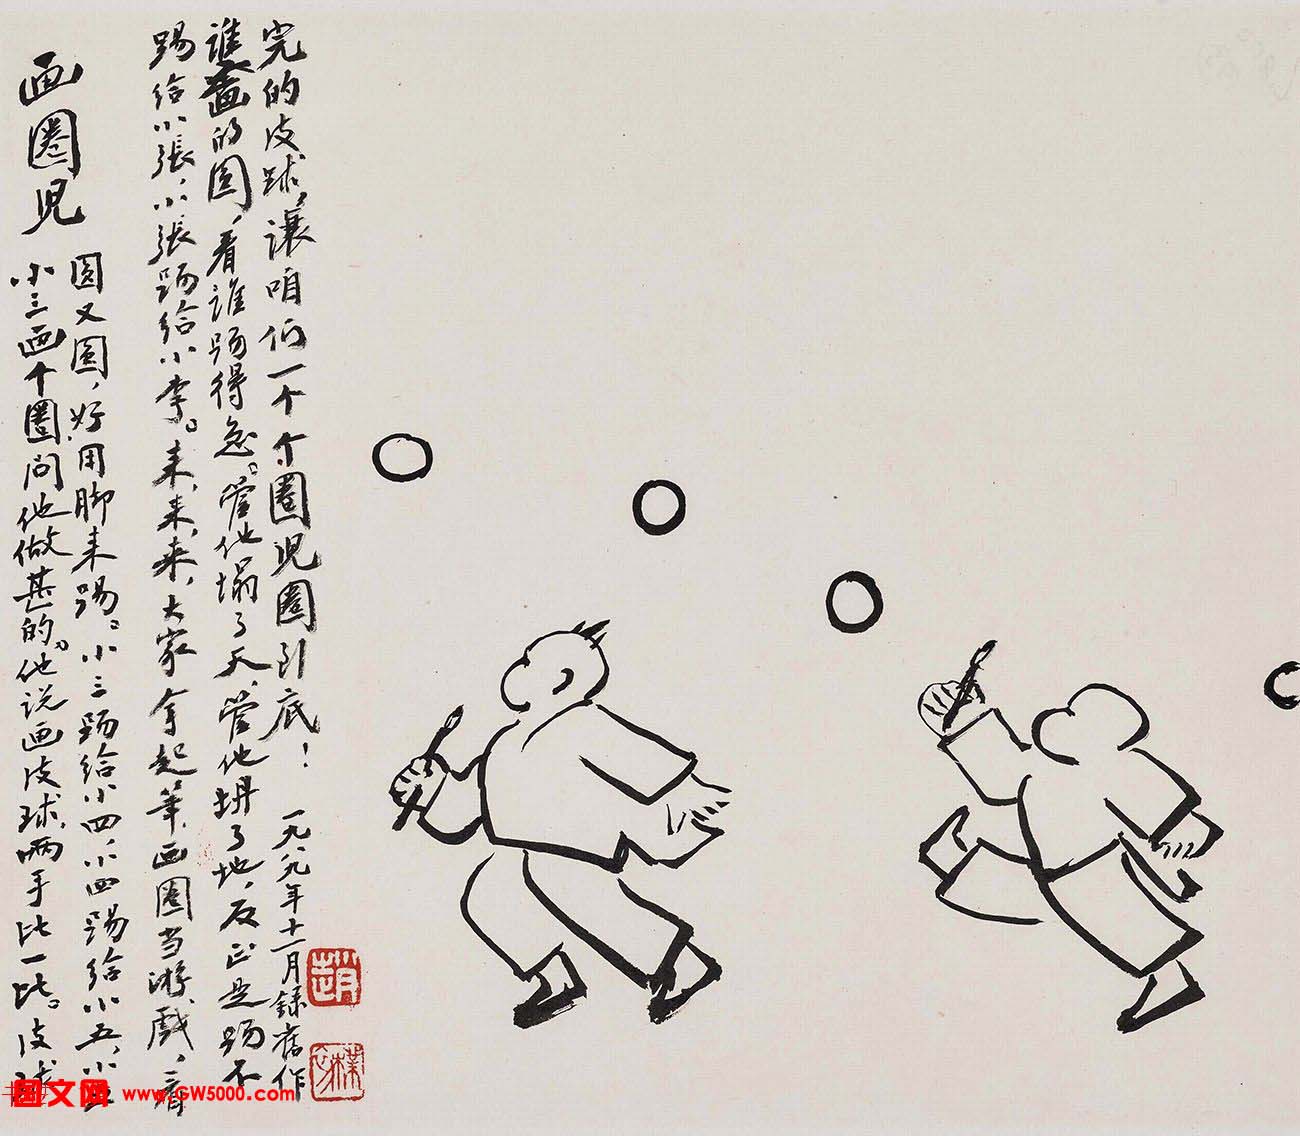 画圈児
小三画个圈问他做甚的。他说画皮球，两手比一比。皮球
圆又圆，好用脚来踢。小三踢给小四，小四踢给小五，小五
踢给小張，小張踢给小李。来，来，来，大家拿起筆，画圈当游戲，看
谁画的圆，看谁踢得急。管他塌了天，管他坍了地，反正是踢不
完的皮球，讓咱们一个个圈児圈到底！ 一九八九年十一月録舊作
趙
樸初
图文网 www.GW5000.com